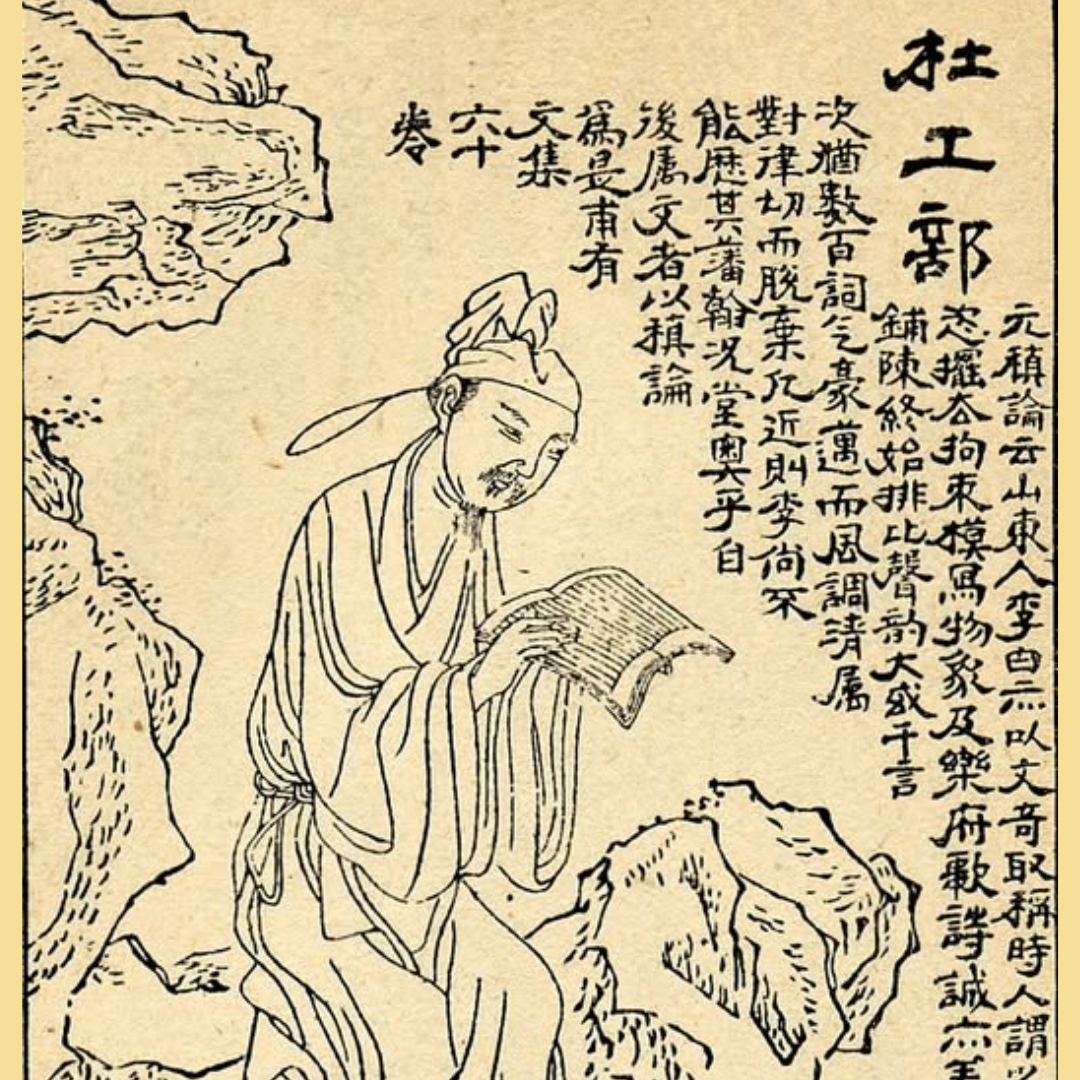 杜工部
元稹論云山東人李白亦以文奇取稱時人謂
恣擺去拘束模寫物象及樂府歌詩誠亦
鋪陳終始排比聲韵大或千言
次猶數百詞气豪邁而風調清属
對律切而脫棄凡近則李尚不
能歷其藩翰況堂奧乎自
後属文者以稹論
爲是甫有
文集
六十
卷